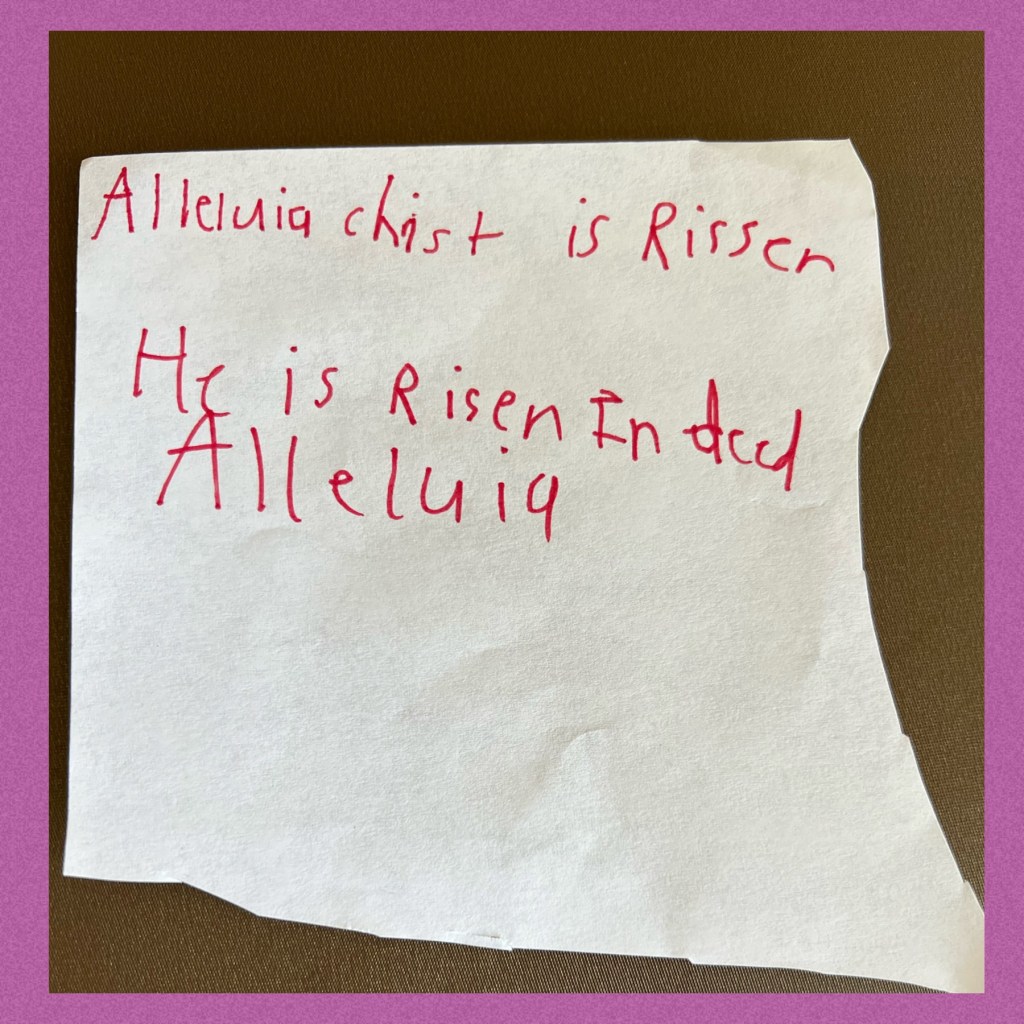 Alleluia christ is Rissen
He is Risen In deed
Alleluia